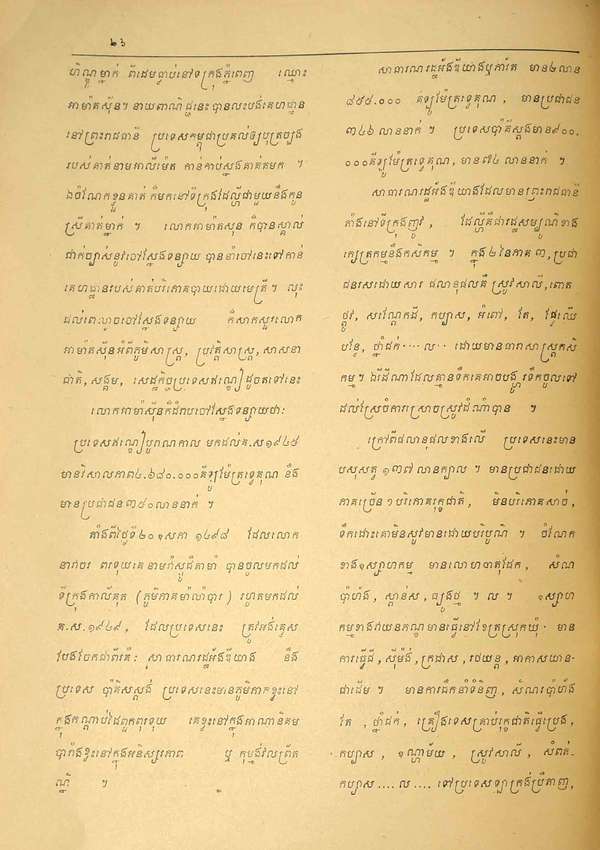 ២៦
ហិណ្ឌូម្នាក់ ពីដើមធ្លាប់នៅទីក្រុងភ្នំពេញ ឈ្មោះ
អាម៉ាត់ស៊ីន។ នាយពាណិជ្ជនេះបានលះបង់គេហដ្ឋាន
នៅព្រះរាជធានី ប្រទេសកម្ពុជាប្រគល់ឲ្យបុត្រច្បង
របស់គាត់នាមអាលីម៉េត កាន់កាប់ក្នុងគាត់តមក ។
ឯចំណែកខ្លួនគាត់ ក៏មកនៅទីក្រុងដែល្លីជាមួយនឹងកូន
ស្រីគាត់ម្នាក់ ។ លោកអាម៉ាត់ស៊ុន ក៏បានស្គាល់
ជាក់ច្បាស់នូវចៅស្វែងទន្សាយ បាននាំចៅនេះទៅកាន់
គេហដ្ឋានរបស់គាត់បរិភោគបាយដោយមេត្រី ។ លុះ
ដល់ពេលល្ងាចចៅស្វែងទន្សាយ ក៏សាកសួរលោក
អាម៉ាត់ស៊ុនអំពីភូមិសាស្ត្រ, ប្រវត្តិសាស្ត្រ, សាសនា
ជាតិ, សង្គម, សេដ្ឋកិច្ចប្រទេសឥណ្ឌៀដូចតទៅនេះ
លោកអាម៉ាស៊ុនក៏ជំរាបចៅស្វែងទន្សាយថា:
ប្រទេសឥណ្ឌៀបុរាណកាល មកដល់គ.ស១៩៤៥
មានវិសាលភាព៤.៦៨០.០០០គីឡូម៉ែត្រទ្វេគុណ នឹង
មានប្រជាជន៣៥០លាននាក់ ។
តាំងពីថ្ងៃទី២០ឧសភា ១៤៩៨ ដែលលោក
នាវាចរ ពរទុយគេ នាមវ៉ាស្កូឌីគាម៉ា បានចូលមកដល់
ទីក្រុងកាល់គុត (ភូមិភាគម៉ាឡាបារ) រហូតមកដល់
គ.ស.១៩៤៩, ដែលប្រទេសនេះ ត្រូវអង់គ្លេស
បែងចែកជាពីរគឺ: សាធារណរដ្ឋអ៊ីនឌីយ៉ាង នឹង
ប្រទេស ប៉ាគីសស្តង់ ប្រទេសនេះមានភូមិភាគខ្លះនៅ
ក្នុងកណ្តាប់ដៃពួកពរទុយ គេខ្លះនៅក្នុងអាណានិគម
បារាំងខ្លះនៅក្នុងអនិស្សរភាព ឬ កុម្មង់វែលព្រីត
ណ្និ ។
សាធារណរដ្ឋអ៊ីនឌីយ៉ាងឬភារ៉ត មាន៤លាន
៨៥៥.០០០ គីឡូម៉ែត្រទ្វេគុណ, មានប្រជាជន
៣៤៦ លាននាក់ ។ ប្រទេសប៉ាគីស្តង់មាន៩០០.
០០០គីឡូម៉ែត្រទ្វេគុណ, មាន៧៤ លាននាក់ ។
សាធារណរដ្ឋអ៊ីនឌីយ៉ាងដែលមានព្រះរាជធានី
តាំងនៅទីក្រុងញូវ, ដែល្លីគឺជារដ្ឋសម្បូណ៌ខាង
ក្សេត្រកម្មនឹងកសិកម្ម ។ ក្នុង២នៃភាគ ៣, ប្រជា
ជនរសដោយសារ ផលានុផលគឺ ស្រូវសាលី, ពោត
ផ្លូវ, សណ្តែកដី, កប្បាស, អំពៅ, តែ, ផ្លែឈើ
បន្លែ, ថ្នាំជក់···ល·· ដោយមានធាពសាស្ត្រកសិ
កម្ម។ ឯដីណាដែលគ្មានទឹកគេអាចបង្ហូរទឹកចូលទៅ
ដល់ស្រែចំការស្រោចស្រូវដំណាំបាន ។
ក្រៅពីផលានុផលខាងលើ ប្រទេសនេះមាន
បសុសត្វ ១៣៧ លានក្បាល ។ មានប្រជាជនដោយ
ភាគច្រើន១បរិភោគរុក្ខជាតិ, មិនបរិភោគសាច់,
ទឹកដោះគោមិនសូវមានដោយបរិបូណ៌ ។ ចំណែក
ខាងឧស្សាហកម្ម មានលោហធាតុដែក, សំណ
ប៉ាហាំង, ស្ពាន់ស, ធ្យូងថ្ម ។ ល ។ ឧស្សាហ
កម្មខាងវាយនភណ្ឌមានធ្វើនៅខែត្រស្រុកឃុំ· មាន
ការធ្វើដី, ស៊ីម៉ង់, ក្រដាស, រថយន្ត, អាកាសយាន-
ជាដើម ។ មានការដឹកនាំទំនិញ, សំណប៉ាហាំង
តែ, ថ្នាំជក់, គ្រឿងទេសគ្រាប់រុក្ខជាតិធ្វើប្រេង,
កប្បាស, ឧណ្ហាម័យ, ស្រូវសាលី, សំពត់-
កប្បាស....ល.... ទៅប្រទេសឡាក្រង់ប្រឹតាញ,